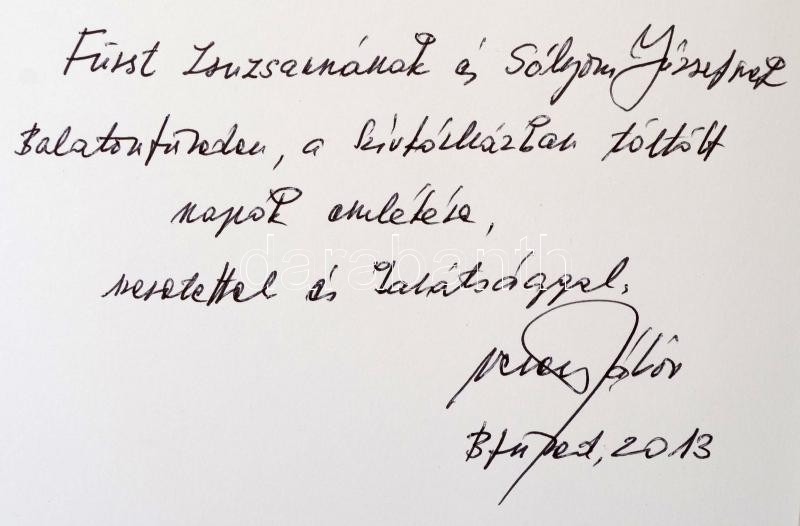 Fürst Zsuzsannának és Sólyom Józsefnek
Balatonfüreden, a Szívkórházban töltött
napok emlékére,
szeretettel és barátsággal:
Gábor
Bfüred, 2013
darabanth